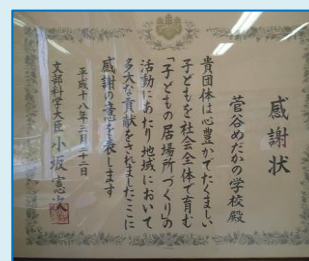 感謝状
菅谷めだかの学校殿
貴団体は心豊かでたくましい
子どもを社会全体で育む
「子どもの居場所づくり」の
活動にあたり地域において
多大な貢献をされましたここに
感謝の意を表します
平成十八年三月二十二日
文部科学大臣 小坂憲次